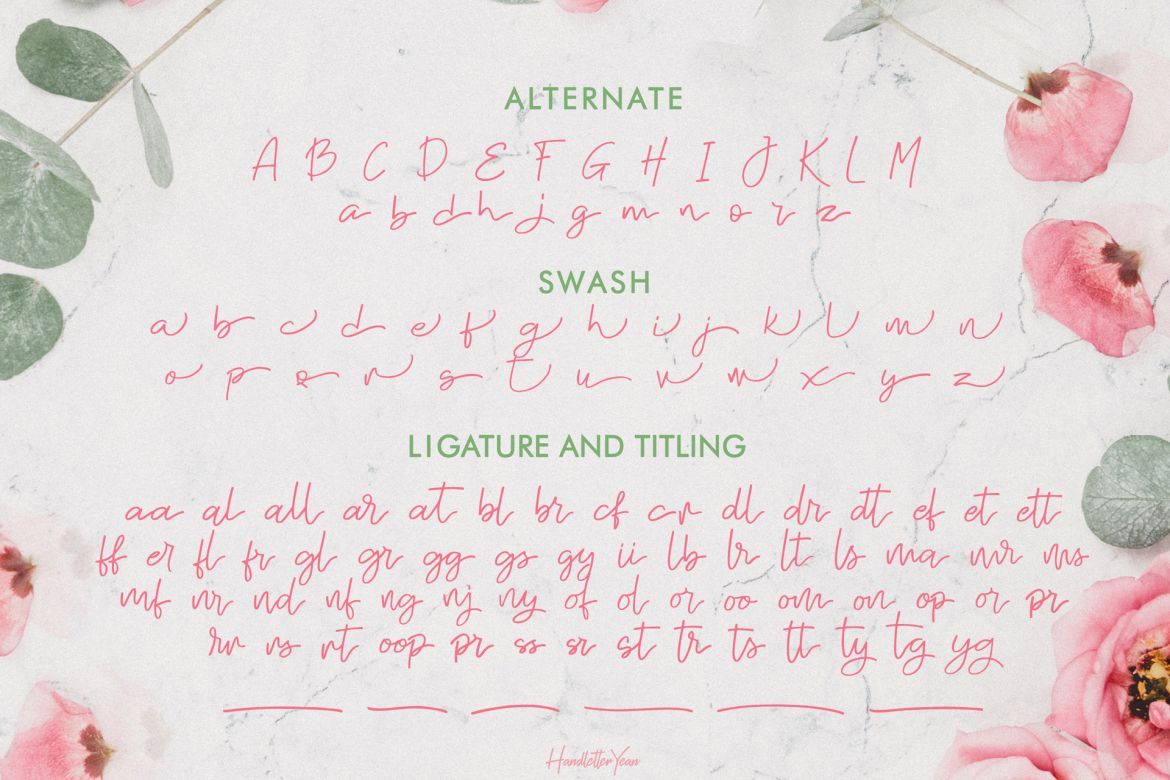 ALTERNATE
A B C D E F G H I J K L M
a b d h j g m n o r z
SWASH
a b c d e f g h i j k l m n
o p q r s t u v w x y z
LIGATURE AND TITLING
aa al all ar at bl br cf cr dl dr dt ef et ett
ff er fl fr gl gr gg gs gy ii lb lr lt ls ma mr ms
mf nr nd nf ng nj ny of ol or oo om on op or pr
rr rs rt oop pr ss sr st tr ts tt ty tg yg
HandletterYean